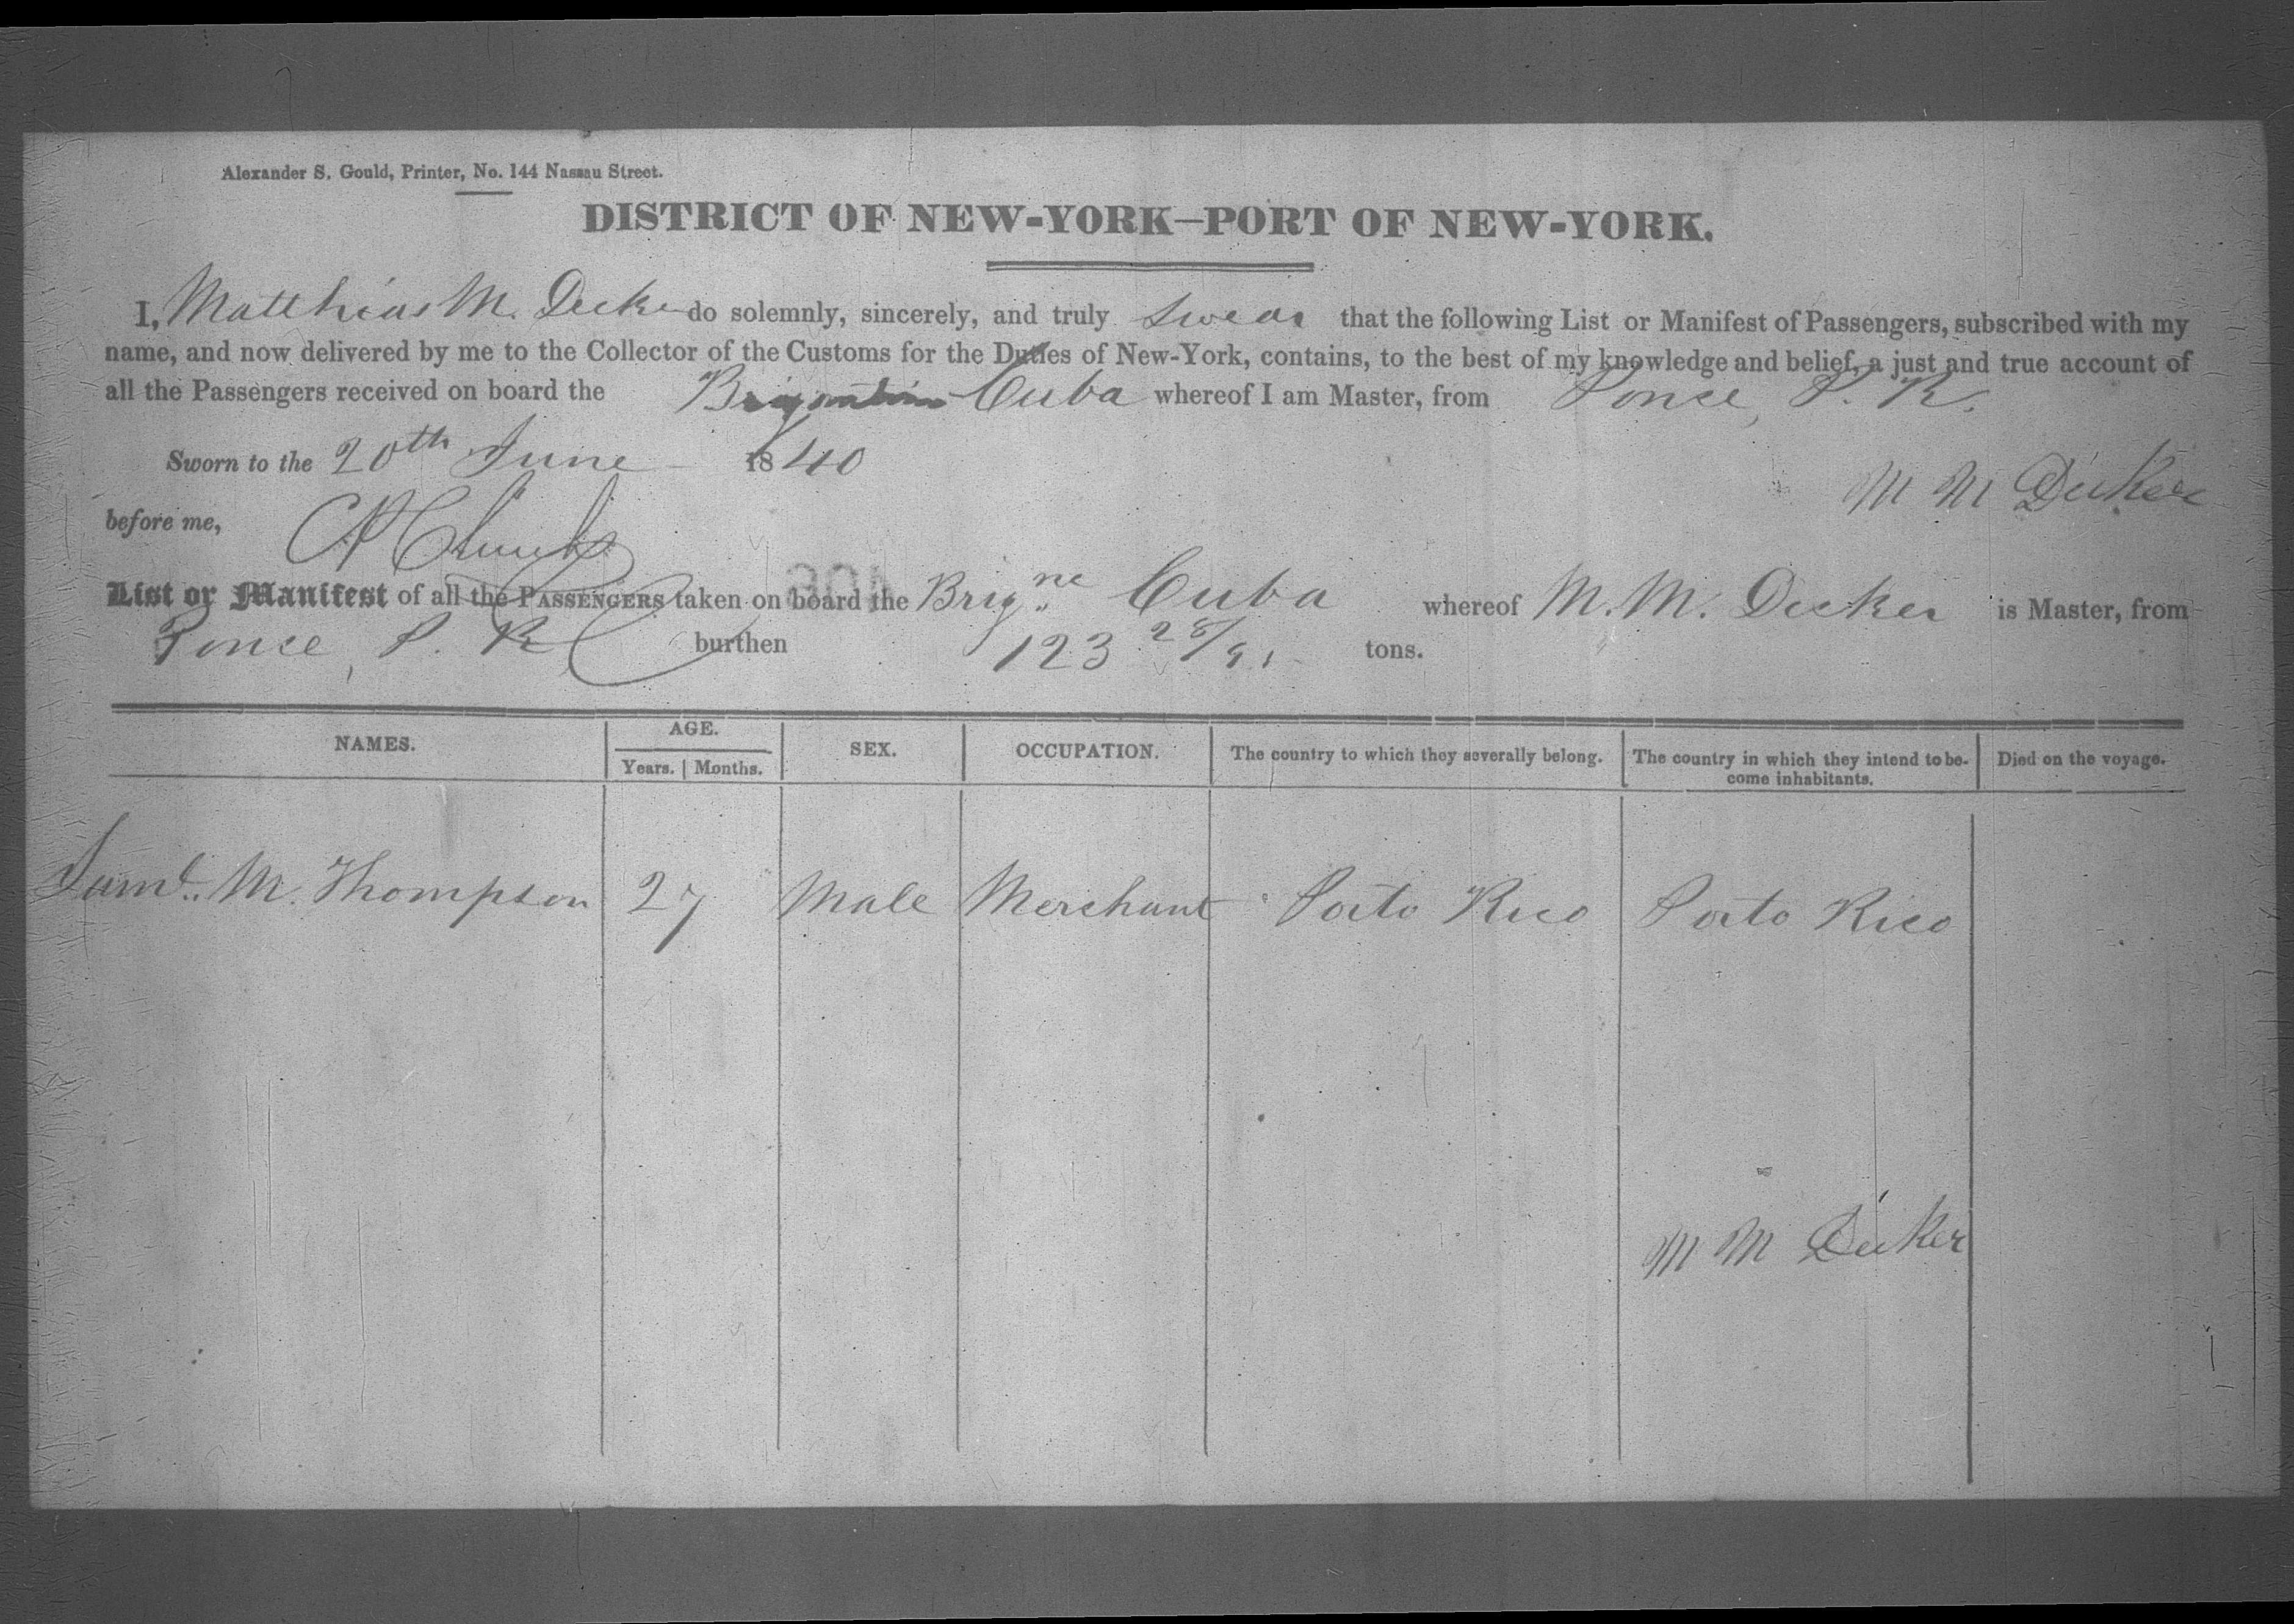 Alexander S. Gould, Printer, No. 144 Nassau Street.
DISTRICT OF NEW-YORK—PORT OF NEW-YORK.
I, Matthias M. Decker do solemnly, sincerely, and truly swear that the following List or Manifest of Passengers, subscribed with my
name, and now delivered by me to the Collector of the Customs for the Duties of New-York, contains, to the best of my knowledge and belief, a just and true account of
all the Passengers received on board the Brigantine Cuba whereof I am Master, from Ponce, P. R.
Sworn to the 20th June 1840
M M Decker
before me,
List or Manifest of all the PASSENGERS taken on board the Brigne Cuba whereof M. M. Decker is Master, from
Ponce, P. R burthen 123 28/91 tons.
NAMES. AGE. SEX. OCCUPATION. The country to which they severally belong. The country in which they intend to be- Died on the voyage.
Years. Months. come inhabitants.
Saml. M. Thompson 27 Male Merchant Porto Rico Porto Rico
M M Decker